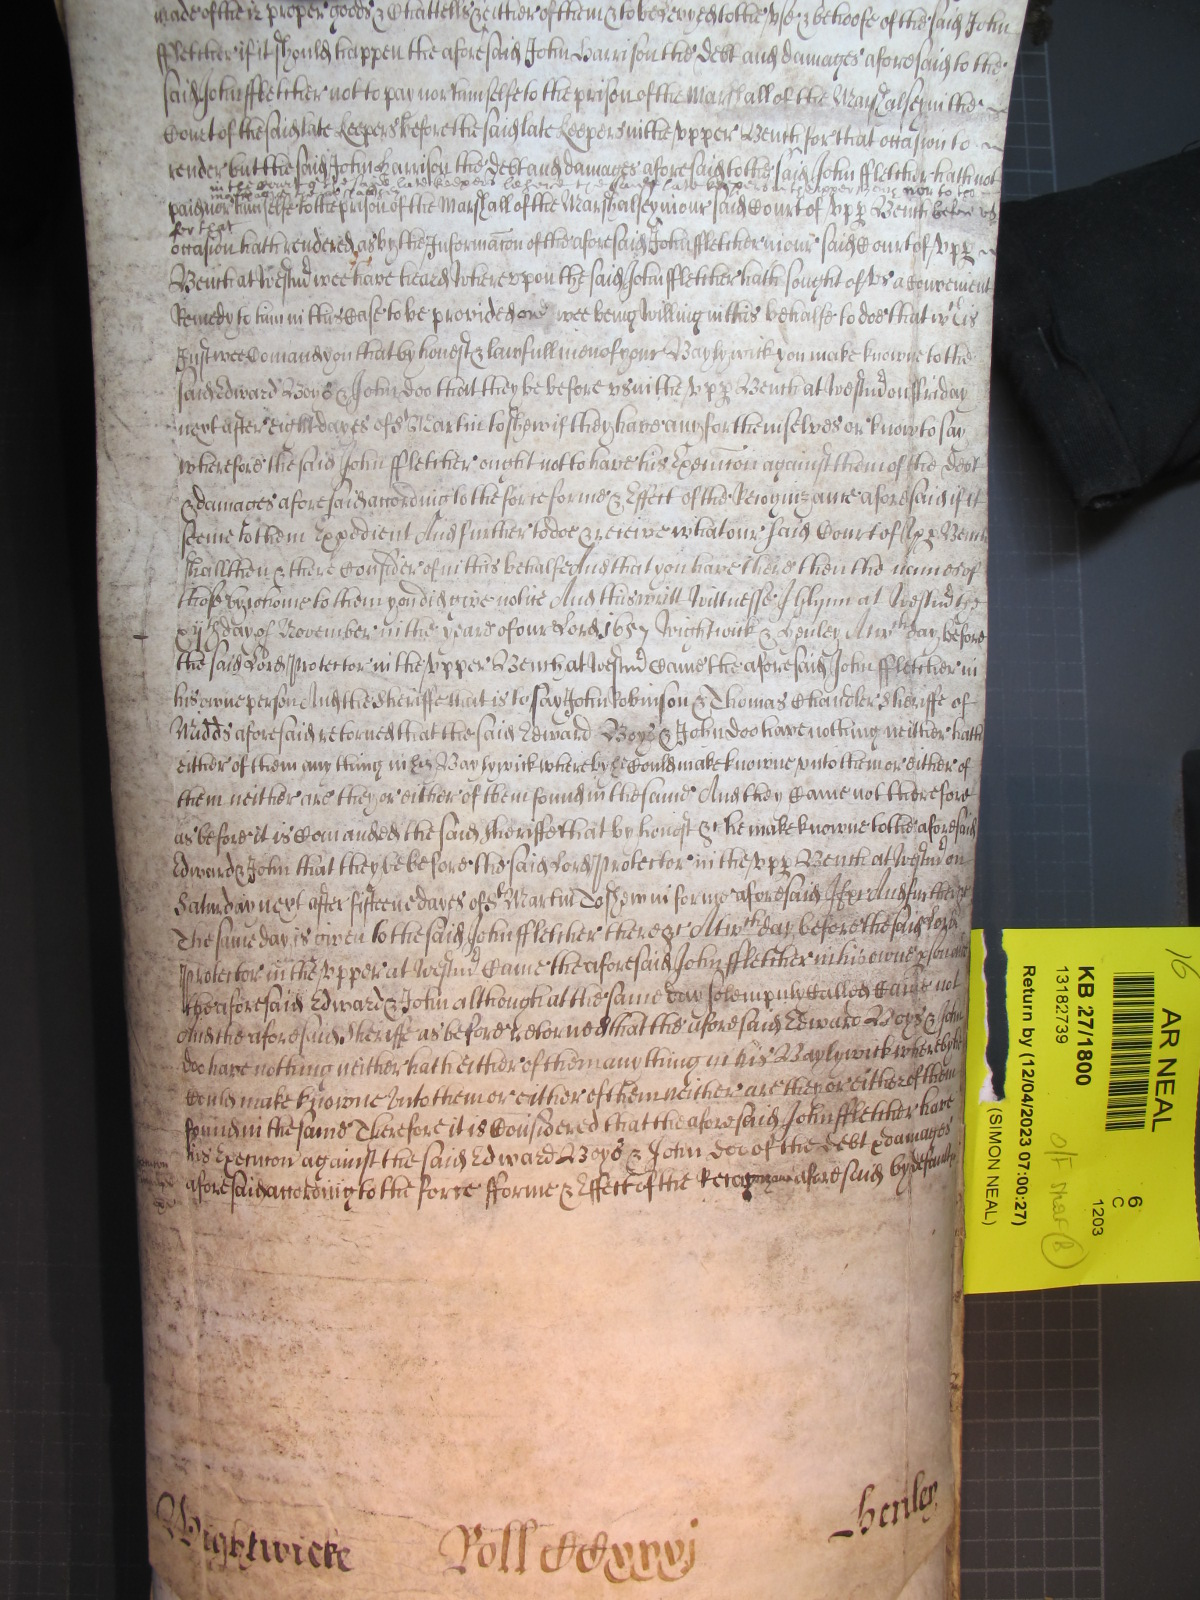 made of their proper goods & Chattells & either of them & to be levyed to the use & behoofe of the said John
ffletcher if it should happen the aforesaid John Harrison the debt and damages aforesaid to the
said John ffletcher not to pay nor himselfe to the prison of the Marshall of the Marshalsey in the
Court of the said late keepers before the said late keepers in the upper Bench for that occasion to
render but the said John Harrison the debt and damages aforesaid to the said John ffletcher hath not
in the Court of the said late keepers before the said late keepers in the upper Bench nor to the
paid nor himselfe to the prison of the Marshall of the Marshalsey in our said Court of upp Bench before us
for that
occasion hath rendered as by the Informacon of the aforesaid John ffletcher in our said Court of upp
Bench at Westmd wee have heard Whereupon the said John ffletcher hath sought of us a convenient
Remedy to him in this Case to be provided and wee being willing in this behalfe to doe that wch is
Just wee Comand you that by honest & lawfull men of your Baylywick you make knowne to the
said Edward Boys & John doo that they be before us in the upp Bench at Westmd on ffriday
next after eight dayes of St Martin to shew if they have any for themselves or know to say
wherefore the said John ffletcher ought not to have his Execution against them of the debt
& damages aforesaid according to the force forme & Effect of the Recognizance aforesaid if it
seeme to them Expedient And further to doe & receive what our said Court of Upp Bench
shall then & there Consider of in this behalfe And that you have there then the names of
those by whome to them you did give notice And this writt Wittnesse J Glynn at Westmd the
xijth day of November in the yeare of our Lord 1657 Wightwick & Henley At wch day before
the said Lord Protector in the upper Bench at Westmd Came the aforesaid John ffletcher in
his owne person And the Sheriffe that is to say John Robinson & Thomas Chandler Sheriffe of
Midds aforesaid retorned that the said Edward Boys & John doo have nothing neither hath
either of them any thing in his Baylywick whereby he Could make knowne unto them or either of
them neither are they or either of them found in the same And they Came not therefore
as before it is Comanded the said Sheriffe that by honest &c he make knowne to the aforesaid
Edward & John that they be before the said Lord Protector in the upp Bench at Westmd on
Saturday next after fifteene dayes of St Martin To shew in forme aforesaid if &c And further &c
The same day is given to the said John ffletcher there &c At wch day before the said Lord
Protector in the upper at Westmd Came the aforesaid John ffletcher in his owne person
the aforesaid Edward & John although at the same day solempnly Called Came not
And the aforesaid Sheriffe as before retorned that the aforesaid Edward Boys & John
doo have nothing neither hath either of them any thing in his Baylywick whereby he
Could make knowne unto them or either of them neither are they or either of them
found in the same Therefore it is Considered that the aforesaid John ffletcher have
his Execution against the said Edward Boys & John doo of the debt & damages
aforesaid according to the force fforme & Effect of the Recognizance aforesaid by default
Wightwicke Roll CCxxxj Henley
16
AR NEAL
KB 27/1800
13182739
Return by (12/04/2023 07:00:27)
(SIMON NEAL)
6
C
1203